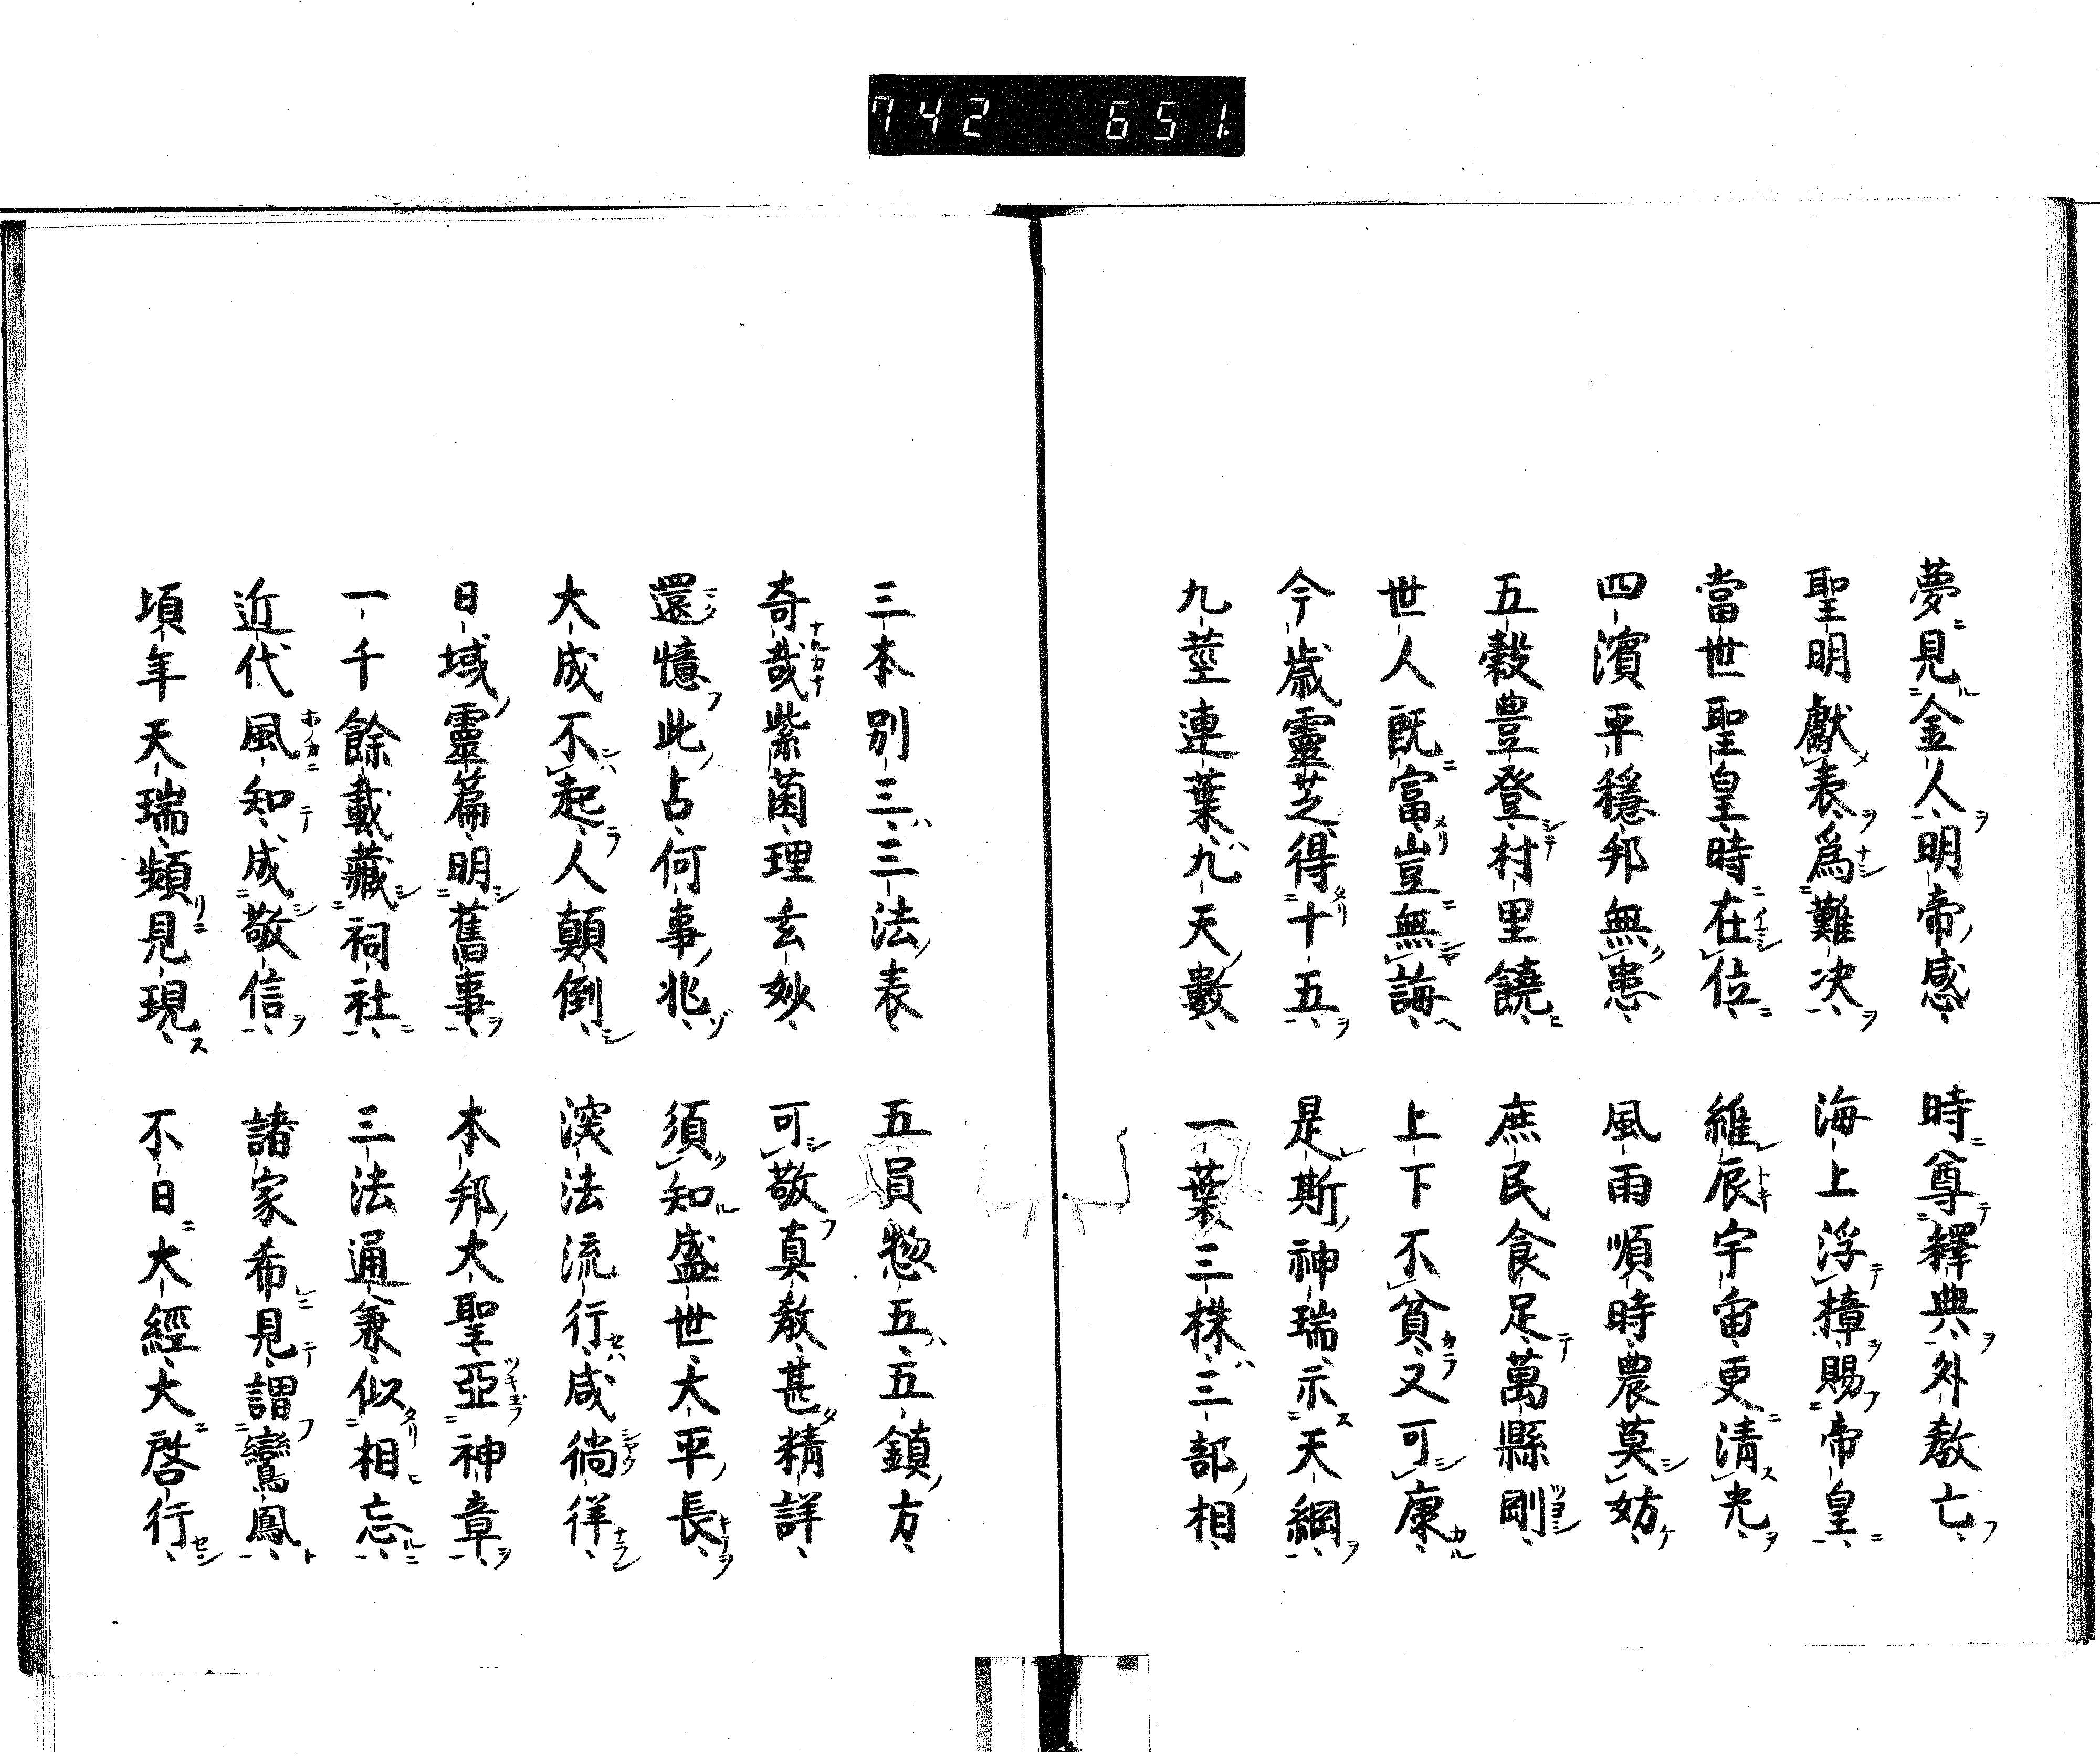 742 651
夢見金人明帝感 時尊釋典外教亡
聖明獻表爲難決 海上浮樟賜帝皇
當世聖皇時在位 維辰宇宙更清光
四濱平穩邦無患 風雨順時農莫妨
五穀豊登村里饒 庶民食足萬縣剛
世人既富豈無誨 上下不貧又可康
今歲靈芝得十五 是斯神瑞示天綱
九莖連葉九天數 一葉三株三部相
三本別三三法表 五員惣五五鎮方
奇哉紫菌理玄妙 可敬真教甚精詳
還憶此占何事兆 須知盛世大平長
大成不起人顛倒 深法流行咸徜徉
日域靈篇明舊事 本邦大聖亞神章
一千餘載藏祠社 三法通兼似相忘
近代風知成敬信 諸家希見謂鸞鳳
頃年天瑞頻見現 不日大經大啓行